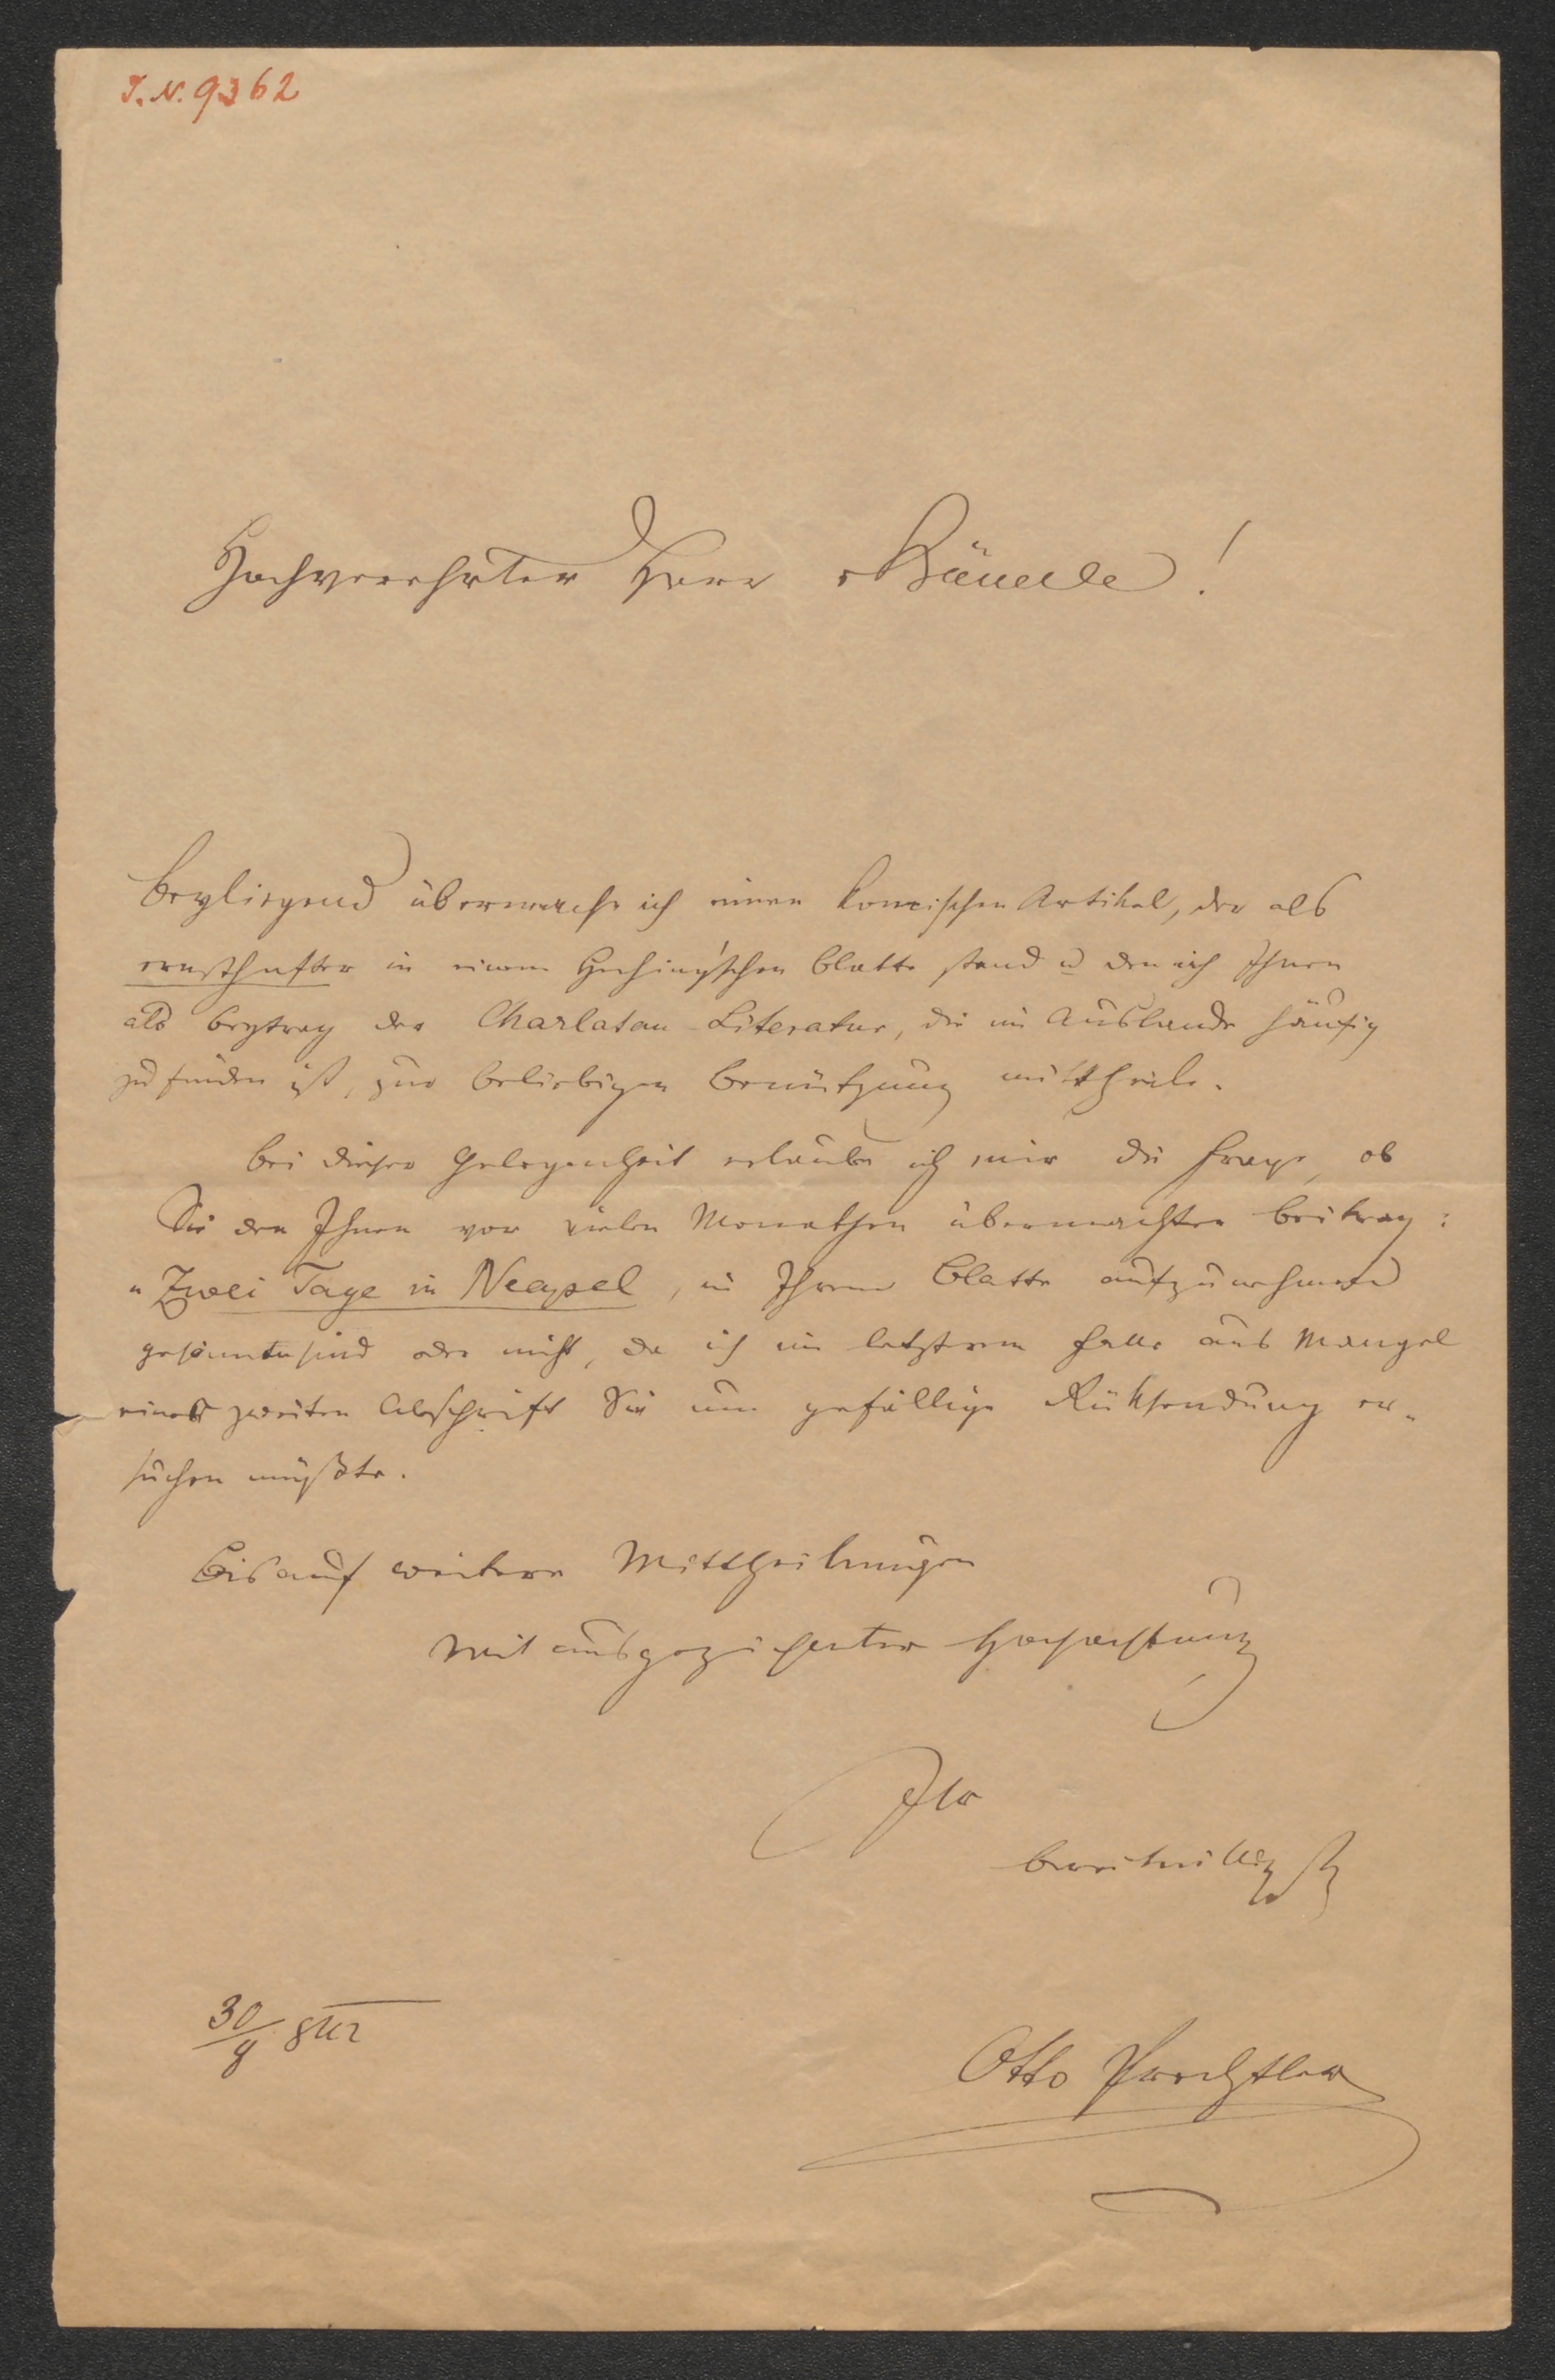 I. N. 9362
Hochverehrter Herr Bäuerle!
Beyliegend übermache ich einen komischen Artikel, der als
ernsthafter in einem Blatte stand u den ich Ihnen
als Beytrag der Charlatan-Literatur, die im Auslande häufig
zu finden ist, zur beliebigen Benützung mittheile.
Bei dieser Gelegenheit erlaube ich mir die Frage, ob
Sie den Ihnen vor vielen Monathen übermachten Beitrag:
„Zwei Tage in Neapel, in Ihrem Blatte aufzunehmen
gesinnt sind oder nicht, da ich im letzterem Falle aus Mangel
einer zweiten Abschrift Sie um gefällige Rüksendung er-
suchen müßte.
Bis auf weitere Mittheilungen
Mit ausgezeichneter Hochachtung
Ihr
bereitwilligst
30/9 842
Otto Prechtler